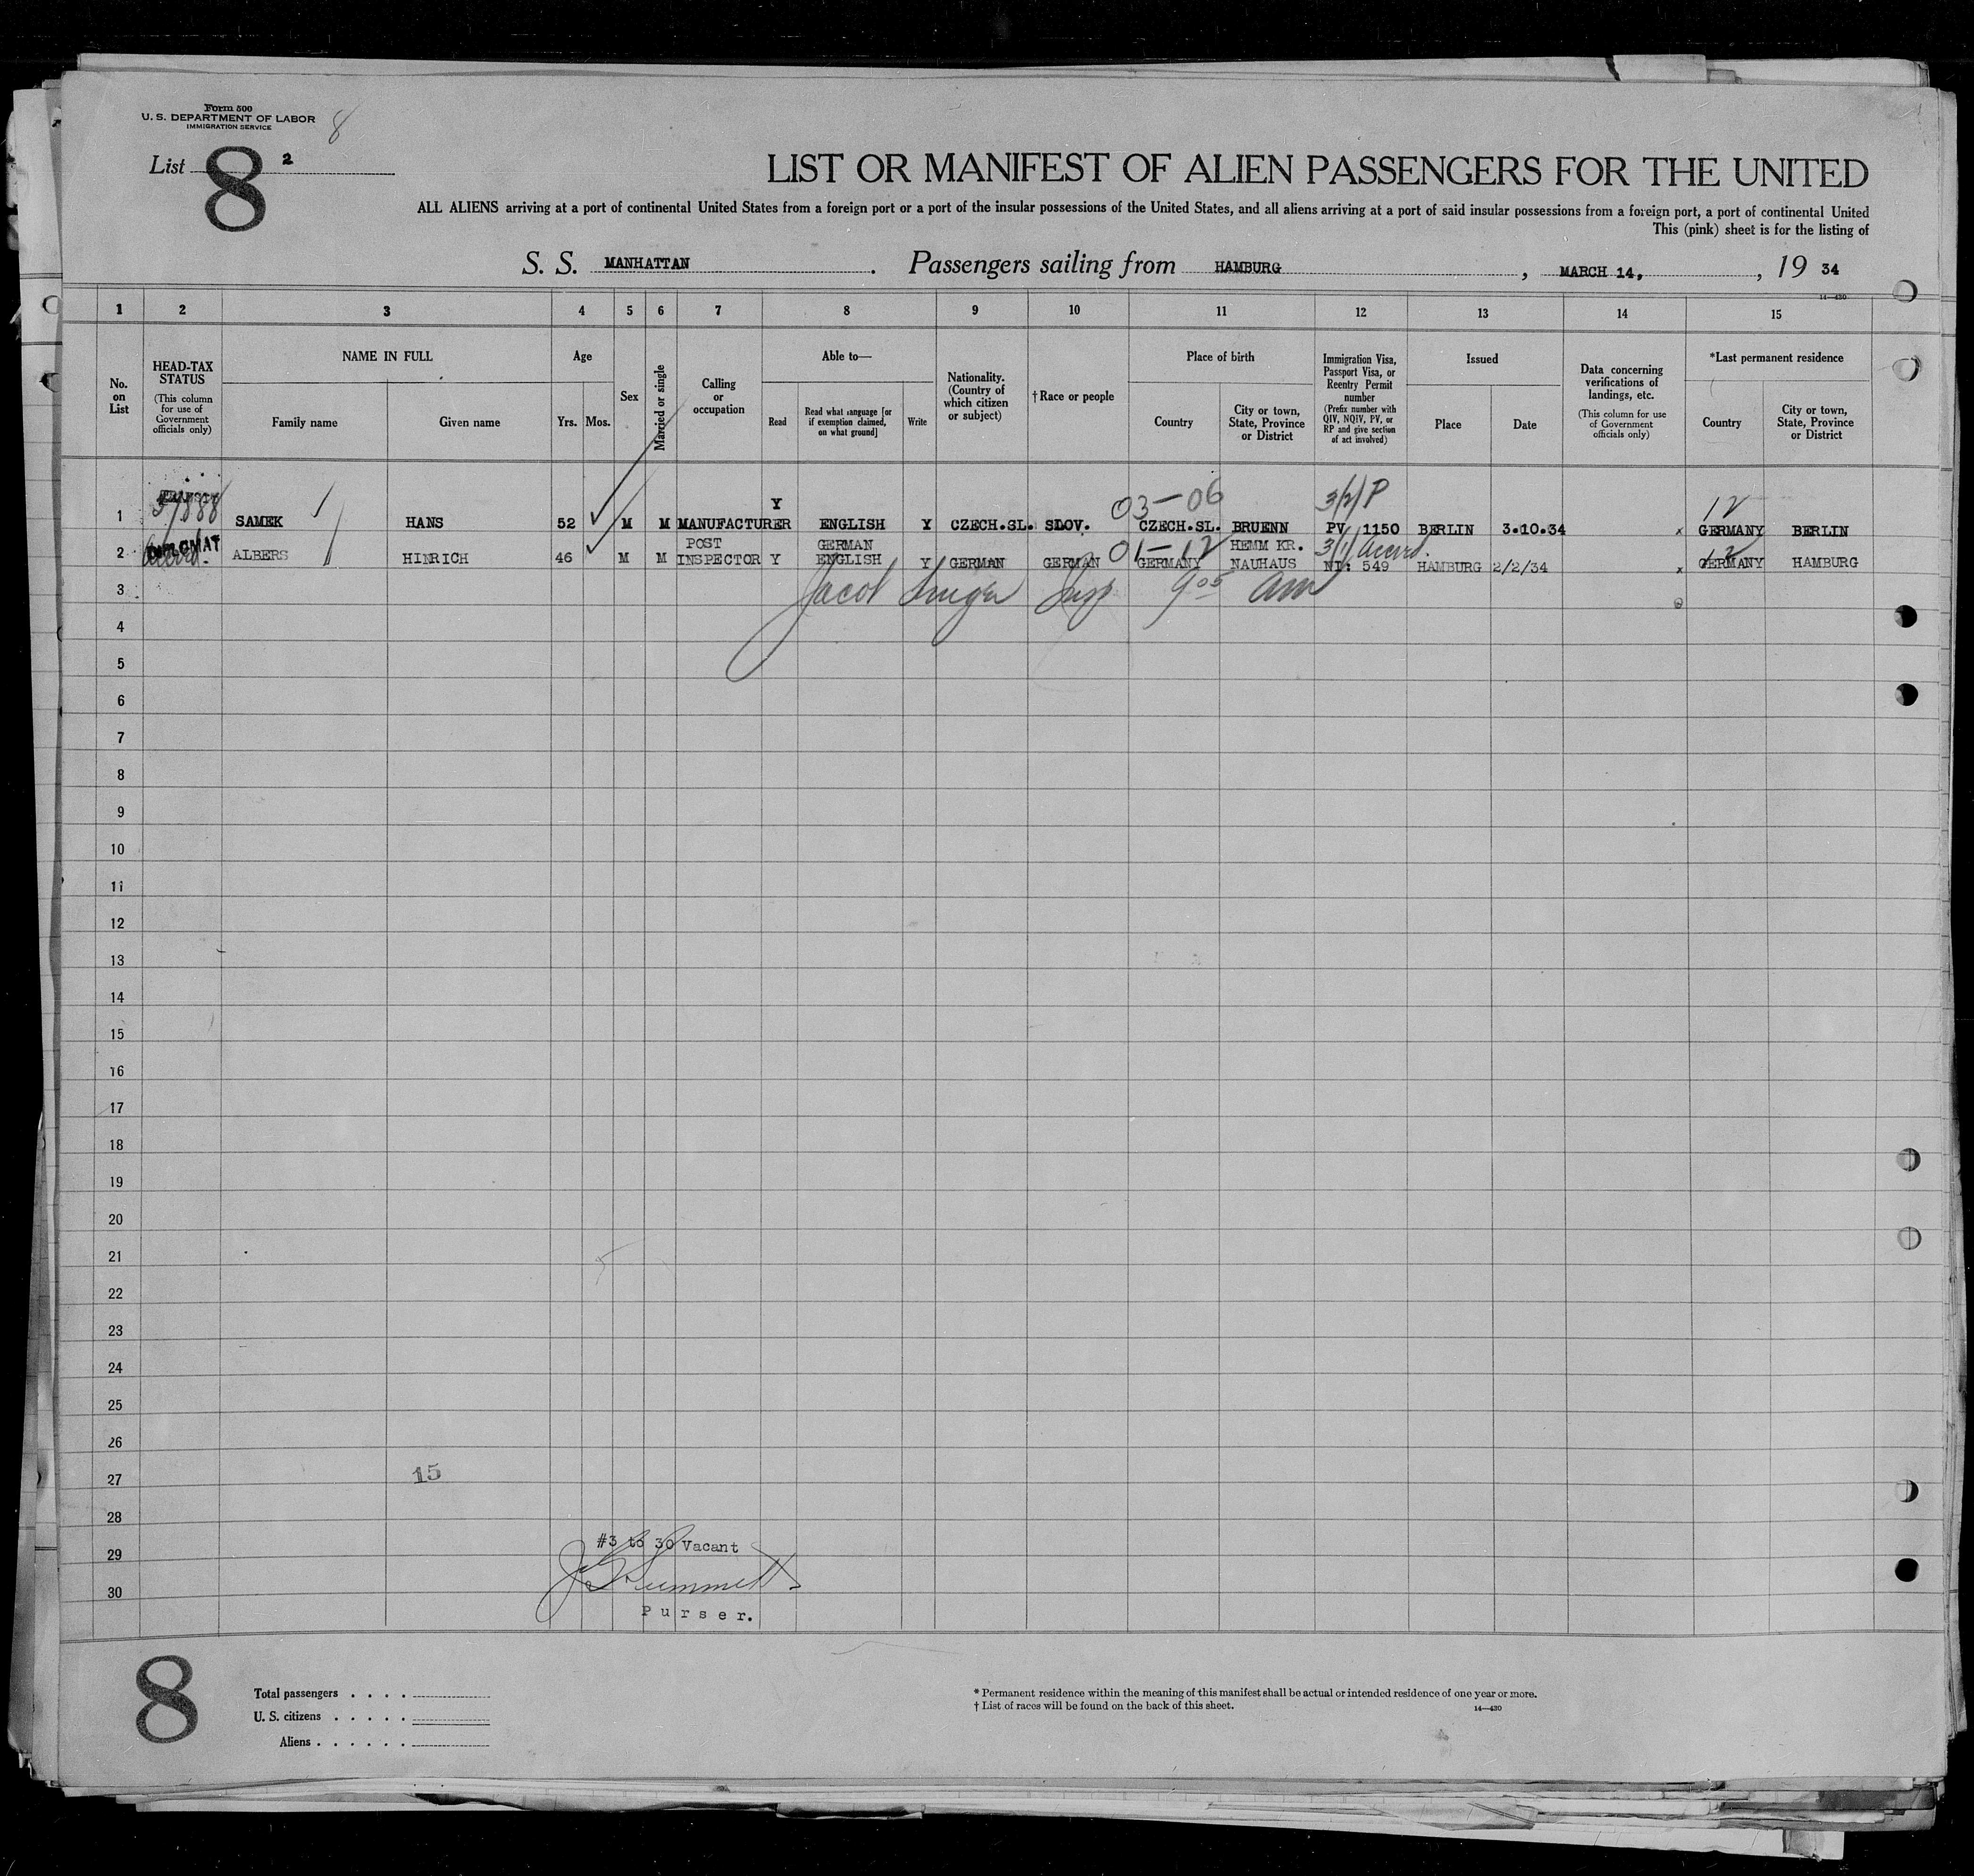 Form 500
U. S. DEPARTMENT OF LABOR
IMMIGRATION SERVICE
8
List 8 2
LIST OR MANIFEST OF ALIEN PASSENGERS FOR THE UNITED
ALL ALIENS arriving at a port of continental United States from a foreign port or a port of the insular possessions of the United States, and all aliens arriving at a port of said insular possessions from a foreign port, a port of continental United
This (pink) sheet is for the listing of
S. S. MANHATTAN . Passengers sailing from HAMBURG , MARCH 14, , 19 34
14—430
1 2 3 4 5 6 7 8 9 10 11 12 13 14 15
No. on List
HEAD-TAX STATUS (This column for use of Government officials only)
NAME IN FULL
Family name
Given name
Age
Yrs. Mos.
Sex
Married or single
Calling or occupation
Able to—
Read
Read what language [or if exemption claimed, on what ground]
Write
Nationality. (Country of which citizen or subject)
†Race or people
Place of birth
Country
City or town, State, Province or District
Immigration Visa, Passport Visa, or Reentry Permit number (Prefix number with QIV, NQIV, PV, or RP and give section of act involved)
Issued
Place
Date
Data concerning verifications of landings, etc. (This column for use of Government officials only)
*Last permanent residence
Country
City or town, State, Province or District
57888 Y 03—06 3/2/P 12
1 SAMEK HANS 52 M M MANUFACTURER ENGLISH Y CZECH.SL. SLOV. CZECH.SL. BRUENN PV 1150 BERLIN 3.10.34 x GERMANY BERLIN
DIPLOMAT POST GERMAN 01—12 HEMM KR. 3/1/ Accrd. 12
2 Accrd. ALBERS HINRICH 46 M M INSPECTOR Y ENGLISH Y GERMAN GERMAN GERMANY NAUHAUS NI: 549 HAMBURG 2/2/34 x GERMANY HAMBURG
3 Jacob Insp 9 05 am
4
5
6
7
8
9
10
11
12
13
14
15
16
17
18
19
20
21
22
23
24
25
26
27 15
28
#3 to 30 Vacant
29
30
Purser.
8
Total passengers . . . .
U. S. citizens . . . . .
Aliens . . . . . .
* Permanent residence within the meaning of this manifest shall be actual or intended residence of one year or more.
† List of races will be found on the back of this sheet.
14—430